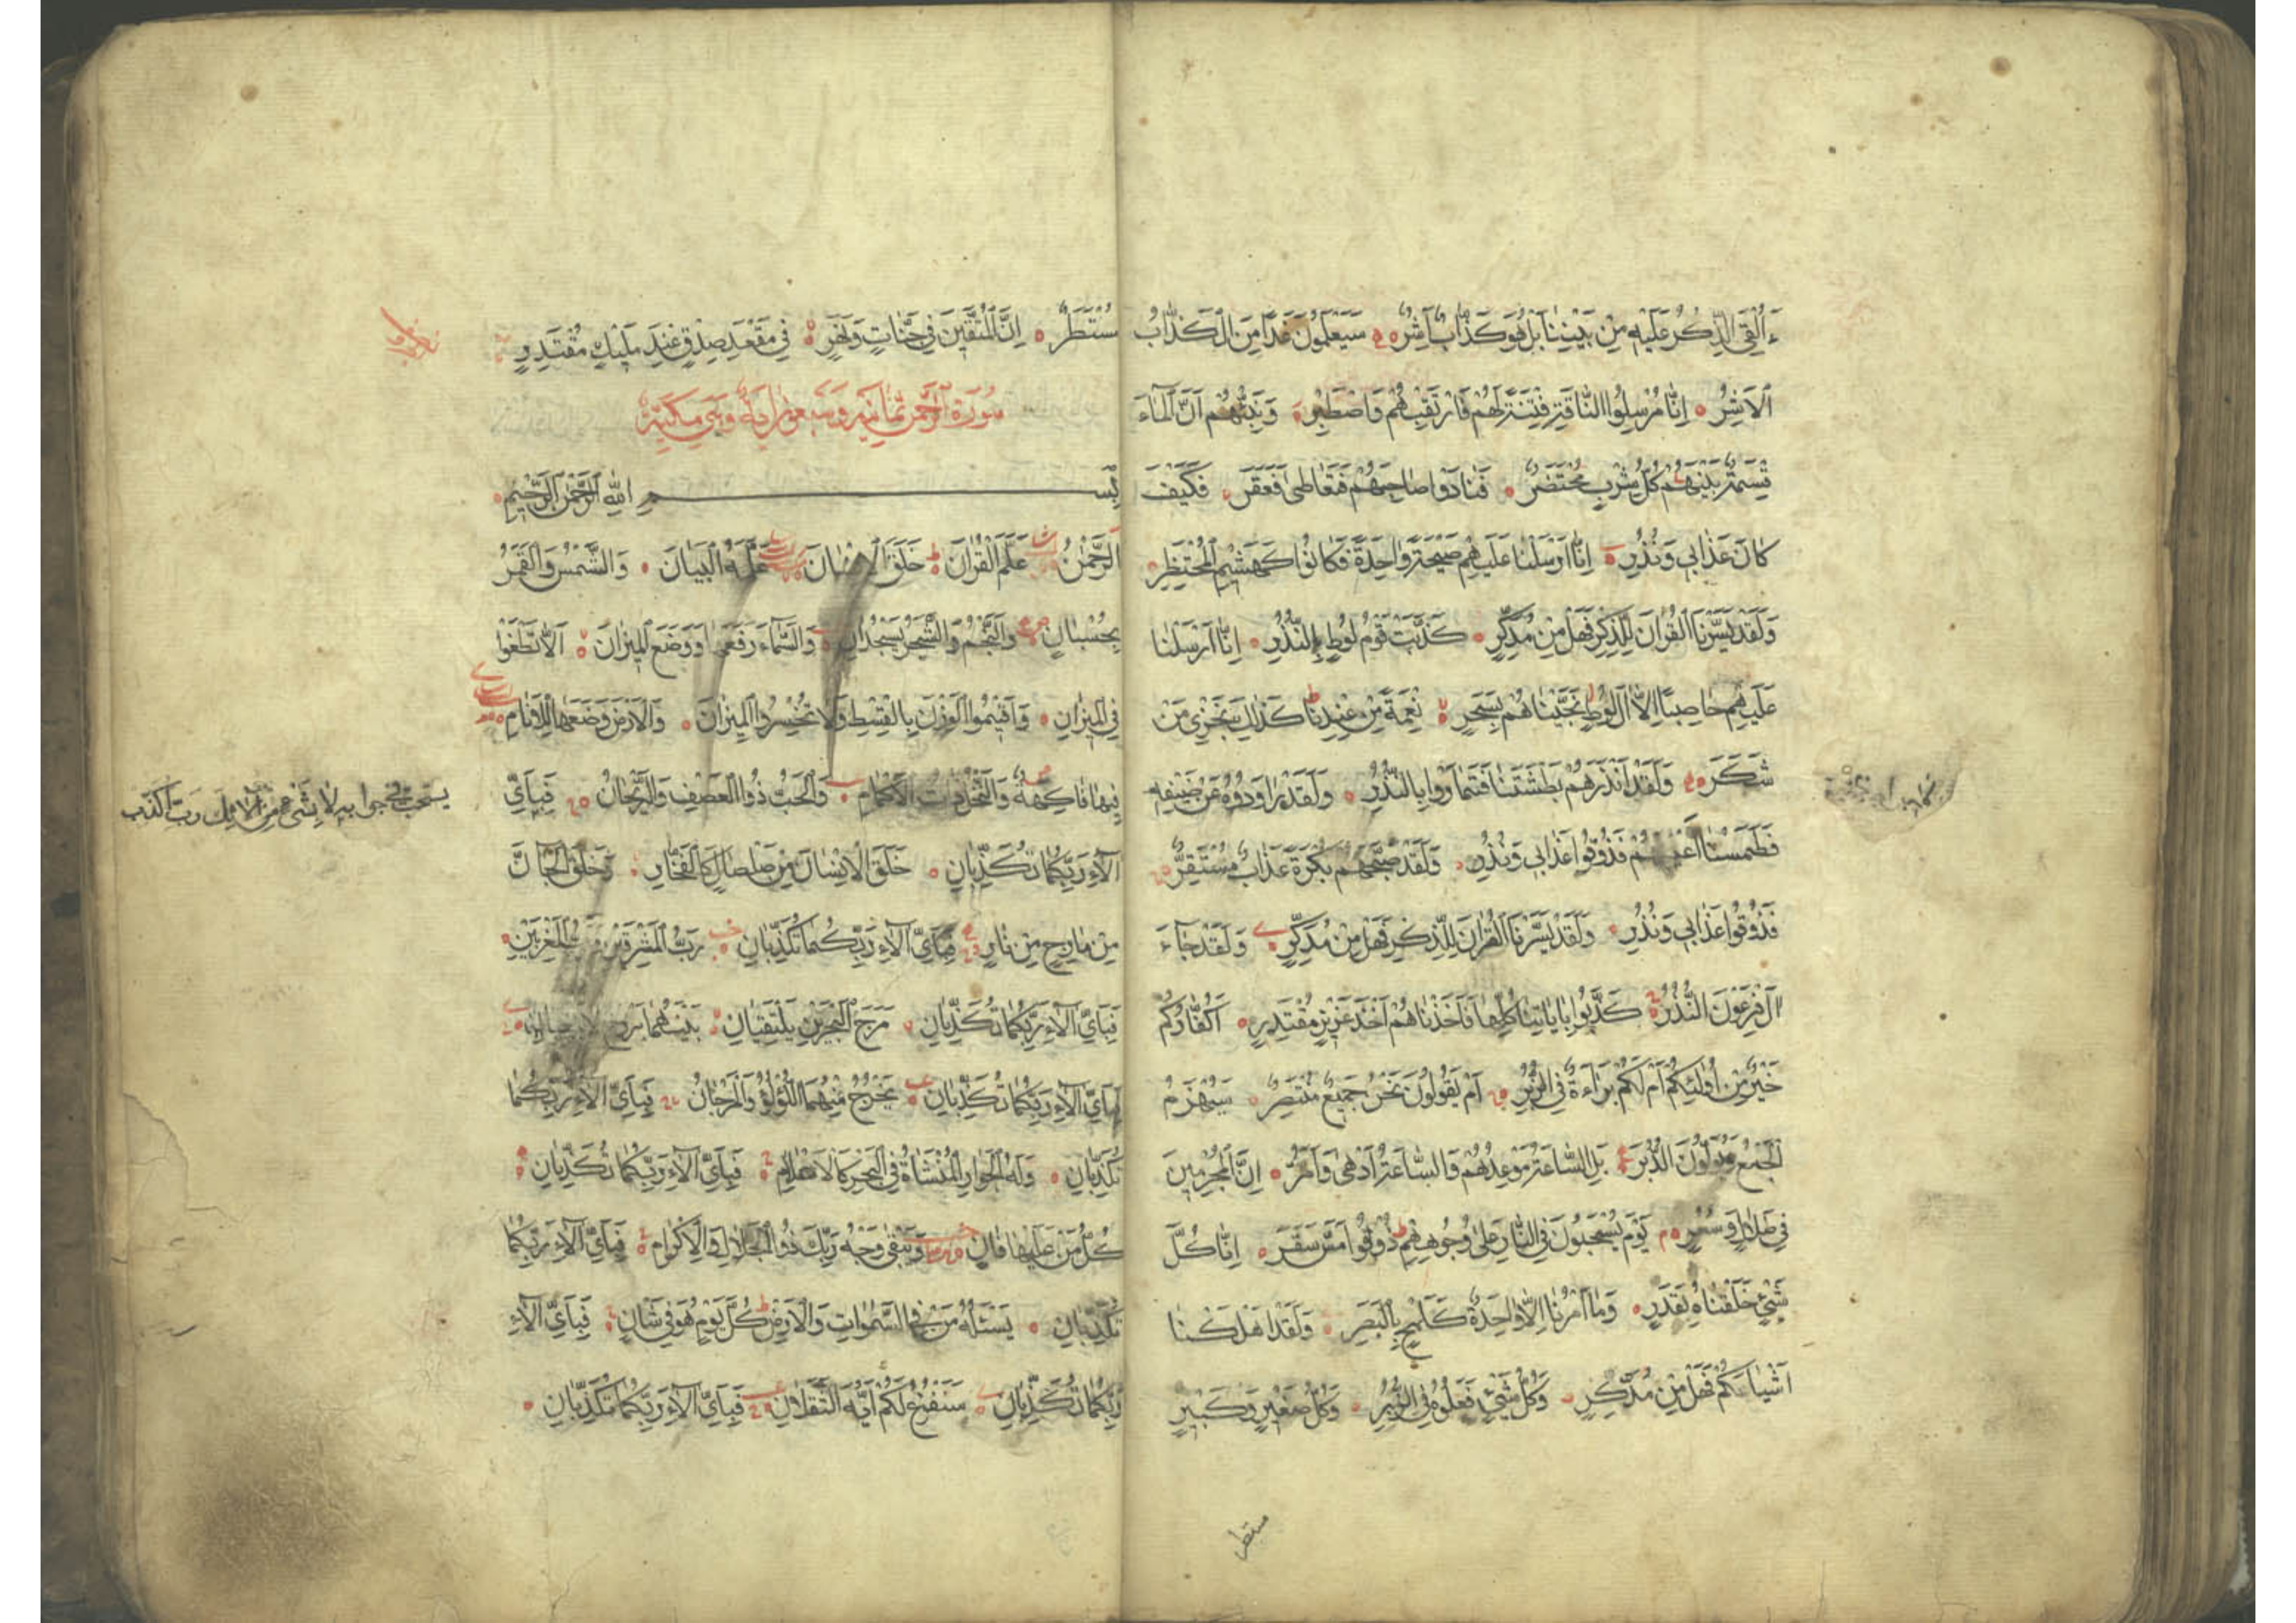 ءَاُلْقِىَ الذِّكْرُ عَلَيْهِ مِنْ بَيْنِنَا بَلْ هُوَ كَذَّابٌ اَشِرٌ سَيَعْلَمُونَ غَدًا مَنِ الْكَذَّابُ
الْاَشِرُ اِنَّا مُرْسِلُوا النَّاقَةِ فِتْنَةً لَهُمْ فَارْتَقِبْهُمْ وَاصْطَبِرْ وَنَبِّئْهُمْ اَنَّ الْمَاءَ
قِسْمَةٌ بَيْنَهُمْ كُلُّ شِرْبٍ مُحْتَضَرٌ فَنَادَوْا صَاحِبَهُمْ فَتَعَاطَى فَعَقَرَ فَكَيْفَ
كَانَ عَذَابِى وَنُذُرِ اِنَّا اَرْسَلْنَا عَلَيْهِمْ صَيْحَةً وَاحِدَةً فَكَانُوا كَهَشِيمِ الْمُحْتَظِرِ
وَلَقَدْ يَسَّرْنَا الْقُرْاٰنَ لِلذِّكْرِ فَهَلْ مِنْ مُدَّكِرٍ كَذَّبَتْ قَوْمُ لُوطٍ بِالنُّذُرِ اِنَّا اَرْسَلْنَا
عَلَيْهِمْ حَاصِبًا اِلَّا اٰلَ لُوطٍ نَجَّيْنَاهُمْ بِسَحَرٍ نِعْمَةً مِنْ عِنْدِنَا كَذٰلِكَ نَجْزِى مَنْ
شَكَرَ وَلَقَدْ اَنْذَرَهُمْ بَطْشَتَنَا فَتَمَارَوْا بِالنُّذُرِ وَلَقَدْ رَاوَدُوهُ عَنْ ضَيْفِهِ
فَطَمَسْنَا اَعْيُنَهُمْ فَذُوقُوا عَذَابِى وَنُذُرِ وَلَقَدْ صَبَّحَهُمْ بُكْرَةً عَذَابٌ مُسْتَقِرٌّ
فَذُوقُوا عَذَابِى وَنُذُرِ وَلَقَدْ يَسَّرْنَا الْقُرْاٰنَ لِلذِّكْرِ فَهَلْ مِنْ مُدَّكِرٍ وَلَقَدْ جَاءَ
اٰلَ فِرْعَوْنَ النُّذُرُ كَذَّبُوا بِاٰيَاتِنَا كُلِّهَا فَاَخَذْنَاهُمْ اَخْذَ عَزِيزٍ مُقْتَدِرٍ اَكُفَّارُكُمْ
خَيْرٌ مِنْ اُولٰئِكُمْ اَمْ لَكُمْ بَرَاءَةٌ فِى الزُّبُرِ اَمْ يَقُولُونَ نَحْنُ جَمِيعٌ مُنْتَصِرٌ سَيُهْزَمُ
الْجَمْعُ وَيُوَلُّونَ الدُّبُرَ بَلِ السَّاعَةُ مَوْعِدُهُمْ وَالسَّاعَةُ اَدْهٰى وَاَمَرُّ اِنَّ الْمُجْرِمِينَ
فِى ضَلَالٍ وَسُعُرٍ يَوْمَ يُسْحَبُونَ فِى النَّارِ عَلٰى وُجُوهِهِمْ ذُوقُوا مَسَّ سَقَرَ اِنَّا كُلَّ
شَىْءٍ خَلَقْنَاهُ بِقَدَرٍ وَمَا اَمْرُنَا اِلَّا وَاحِدَةٌ كَلَمْحٍ بِالْبَصَرِ وَلَقَدْ اَهْلَكْنَا
اَشْيَاعَكُمْ فَهَلْ مِنْ مُدَّكِرٍ وَكُلُّ شَىْءٍ فَعَلُوهُ فِى الزُّبُرِ وَكُلُّ صَغِيرٍ وَكَبِيرٍ
مستطر
مُسْتَطَرٌ اِنَّ الْمُتَّقِينَ فِى جَنَّاتٍ وَنَهَرٍ فِى مَقْعَدِ صِدْقٍ عِنْدَ مَلِيكٍ مُقْتَدِرٍ
سُورَةُ الرَّحْمٰن ثمانية وسبعون اٰية وهى مكية
بِسْمِ اللّٰهِ الرَّحْمٰنِ الرَّحِيمِ
اَلرَّحْمٰنُ عَلَّمَ الْقُرْاٰنَ خَلَقَ الْاِنْسَانَ عَلَّمَهُ الْبَيَانَ وَالشَّمْسُ وَالْقَمَرُ
بِحُسْبَانٍ وَالنَّجْمُ وَالشَّجَرُ يَسْجُدَانِ وَالسَّمَاءَ رَفَعَهَا وَوَضَعَ الْمِيزَانَ اَلَّا تَطْغَوْا
فِى الْمِيزَانِ وَاَقِيمُوا الْوَزْنَ بِالْقِسْطِ وَلَا تُخْسِرُوا الْمِيزَانَ وَالْاَرْضَ وَضَعَهَا لِلْاَنَامِ
فِيهَا فَاكِهَةٌ وَالنَّخْلُ ذَاتُ الْاَكْمَامِ وَالْحَبُّ ذُو الْعَصْفِ وَالرَّيْحَانُ فَبِاَىِّ
اٰلَاءِ رَبِّكُمَا تُكَذِّبَانِ خَلَقَ الْاِنْسَانَ مِنْ صَلْصَالٍ كَالْفَخَّارِ وَخَلَقَ الْجَانَّ
مِنْ مَارِجٍ مِنْ نَارٍ فَبِاَىِّ اٰلَاءِ رَبِّكُمَا تُكَذِّبَانِ رَبُّ الْمَشْرِقَيْنِ وَرَبُّ الْمَغْرِبَيْنِ
فَبِاَىِّ اٰلَاءِ رَبِّكُمَا تُكَذِّبَانِ مَرَجَ الْبَحْرَيْنِ يَلْتَقِيَانِ بَيْنَهُمَا بَرْزَخٌ لَا يَبْغِيَانِ
فَبِاَىِّ اٰلَاءِ رَبِّكُمَا تُكَذِّبَانِ يَخْرُجُ مِنْهُمَا اللُّؤْلُؤُ وَالْمَرْجَانُ فَبِاَىِّ اٰلَاءِ رَبِّكُمَا
تُكَذِّبَانِ وَلَهُ الْجَوَارِ الْمُنْشَاٰتُ فِى الْبَحْرِ كَالْاَعْلَامِ فَبِاَىِّ اٰلَاءِ رَبِّكُمَا تُكَذِّبَانِ
كُلُّ مَنْ عَلَيْهَا فَانٍ وَيَبْقٰى وَجْهُ رَبِّكَ ذُو الْجَلَالِ وَالْاِكْرَامِ فَبِاَىِّ اٰلَاءِ رَبِّكُمَا
تُكَذِّبَانِ يَسْئَلُهُ مَنْ فِى السَّمٰوَاتِ وَالْاَرْضِ كُلَّ يَوْمٍ هُوَ فِى شَاْنٍ فَبِاَىِّ اٰلَاءِ
رَبِّكُمَا تُكَذِّبَانِ سَنَفْرُغُ لَكُمْ اَيُّهَ الثَّقَلَانِ فَبِاَىِّ اٰلَاءِ رَبِّكُمَا تُكَذِّبَانِ